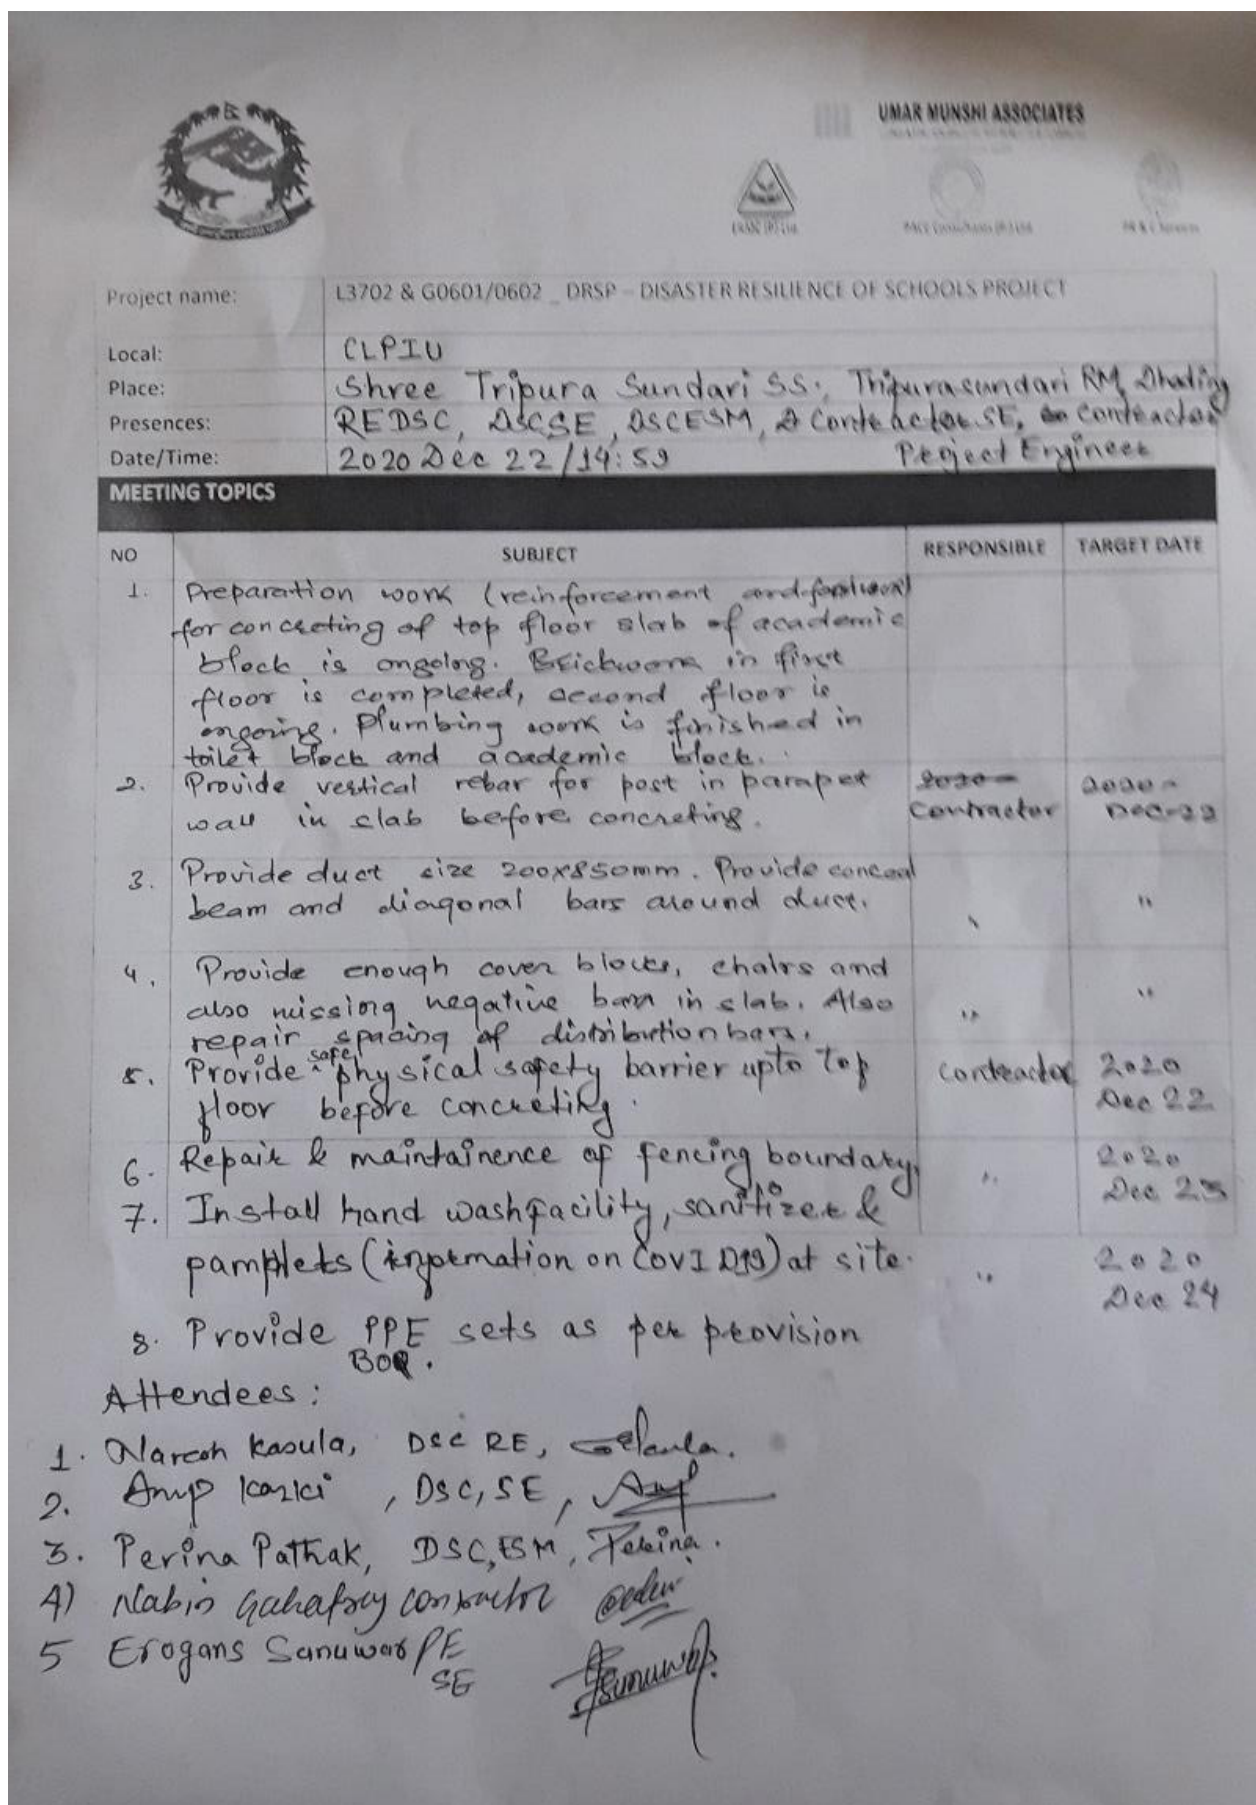 UMAR MUNSHI ASSOCIATES
Project name: L3702 & G0601/0602 _ DRSP – DISASTER RESILIENCE OF SCHOOLS PROJECT
Local: CLPIU
Place: Shree Tripura Sundari SS, Tripurasundari RM, Dhading
Presences: REDSC, DSCSE, DSCESM, Contractor SE, Contractor
Project Engineer
Date/Time: 2020 Dec 22/14:59
MEETING TOPICS
NO SUBJECT RESPONSIBLE TARGET DATE
1. Preparation work (reinforcement and formwork)
for concreting of top floor slab of academic
block is ongoing. Brickwork in first
floor is completed, second floor is
ongoing. Plumbing work is finished in
toilet block and academic block.
2. Provide vertical rebar for post in parapet 2020-
wall in slab before concreting. Contractor Dec-22
3. Provide duct size 200x850mm. Provide conceal
beam and diagonal bars around duct. "
4. Provide enough cover blocks, chairs and
also missing negative bars in slab. Also " "
repair spacing of distribution bars.
5. Provide safe physical safety barrier upto top contractor 2020
floor before concreting. Dec 22
6. Repair & maintainence of fencing boundary. " 2020
Dec 23
7. Install hand wash facility, sanitizer &
pamplets (information on COVID19) at site. " 2020
Dec 24
8. Provide PPE sets as per provision
BOQ.
Attendees:
1. Naresh Kasula, DSC RE,
2. Anup Karki, DSC, SE,
3. Perina Pathak, DSC, ESM, Perina.
4) Nabin contractor
5 Erogans Sanuwar PE
SE